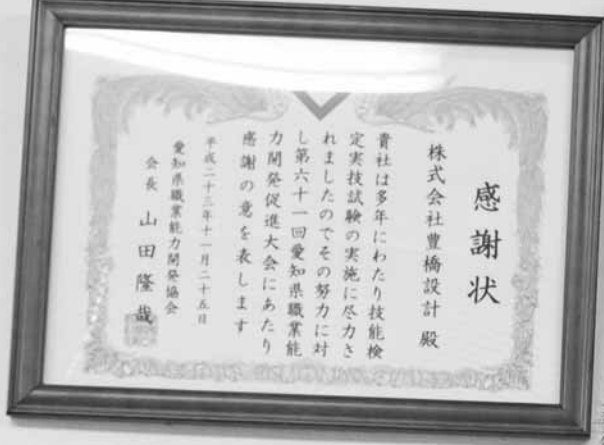 感謝状
株式会社豊橋設計 殿
貴社は多年にわたり技能検
定実技試験の実施に尽力さ
れましたのでその努力に対
し第六十一回愛知県職業能
力開発促進大会にあたり
感謝の意を表します
平成二十三年十一月二十五日
愛知県職業能力開発協会
会長 山田隆哉